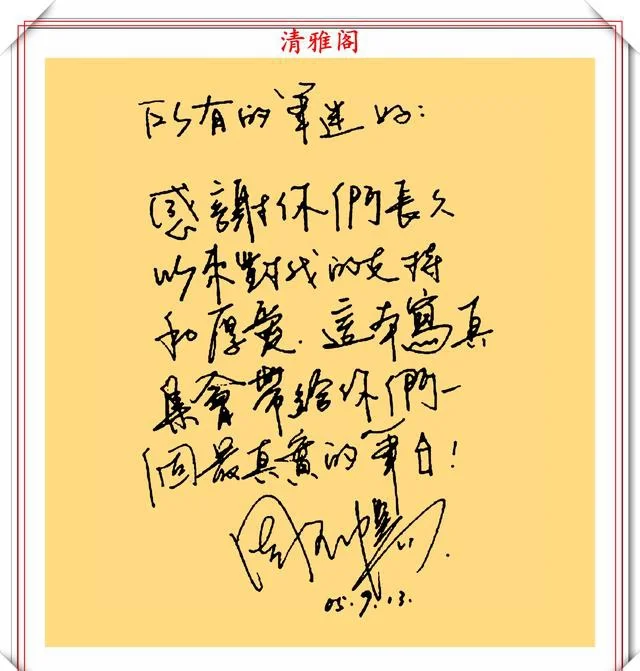 清雅阁
所有的筆迷好:
感謝你們長久
以來對我的支持
和厚愛.這本寫真
集會帶給你們一
個最真實的筆!
05.9.13.